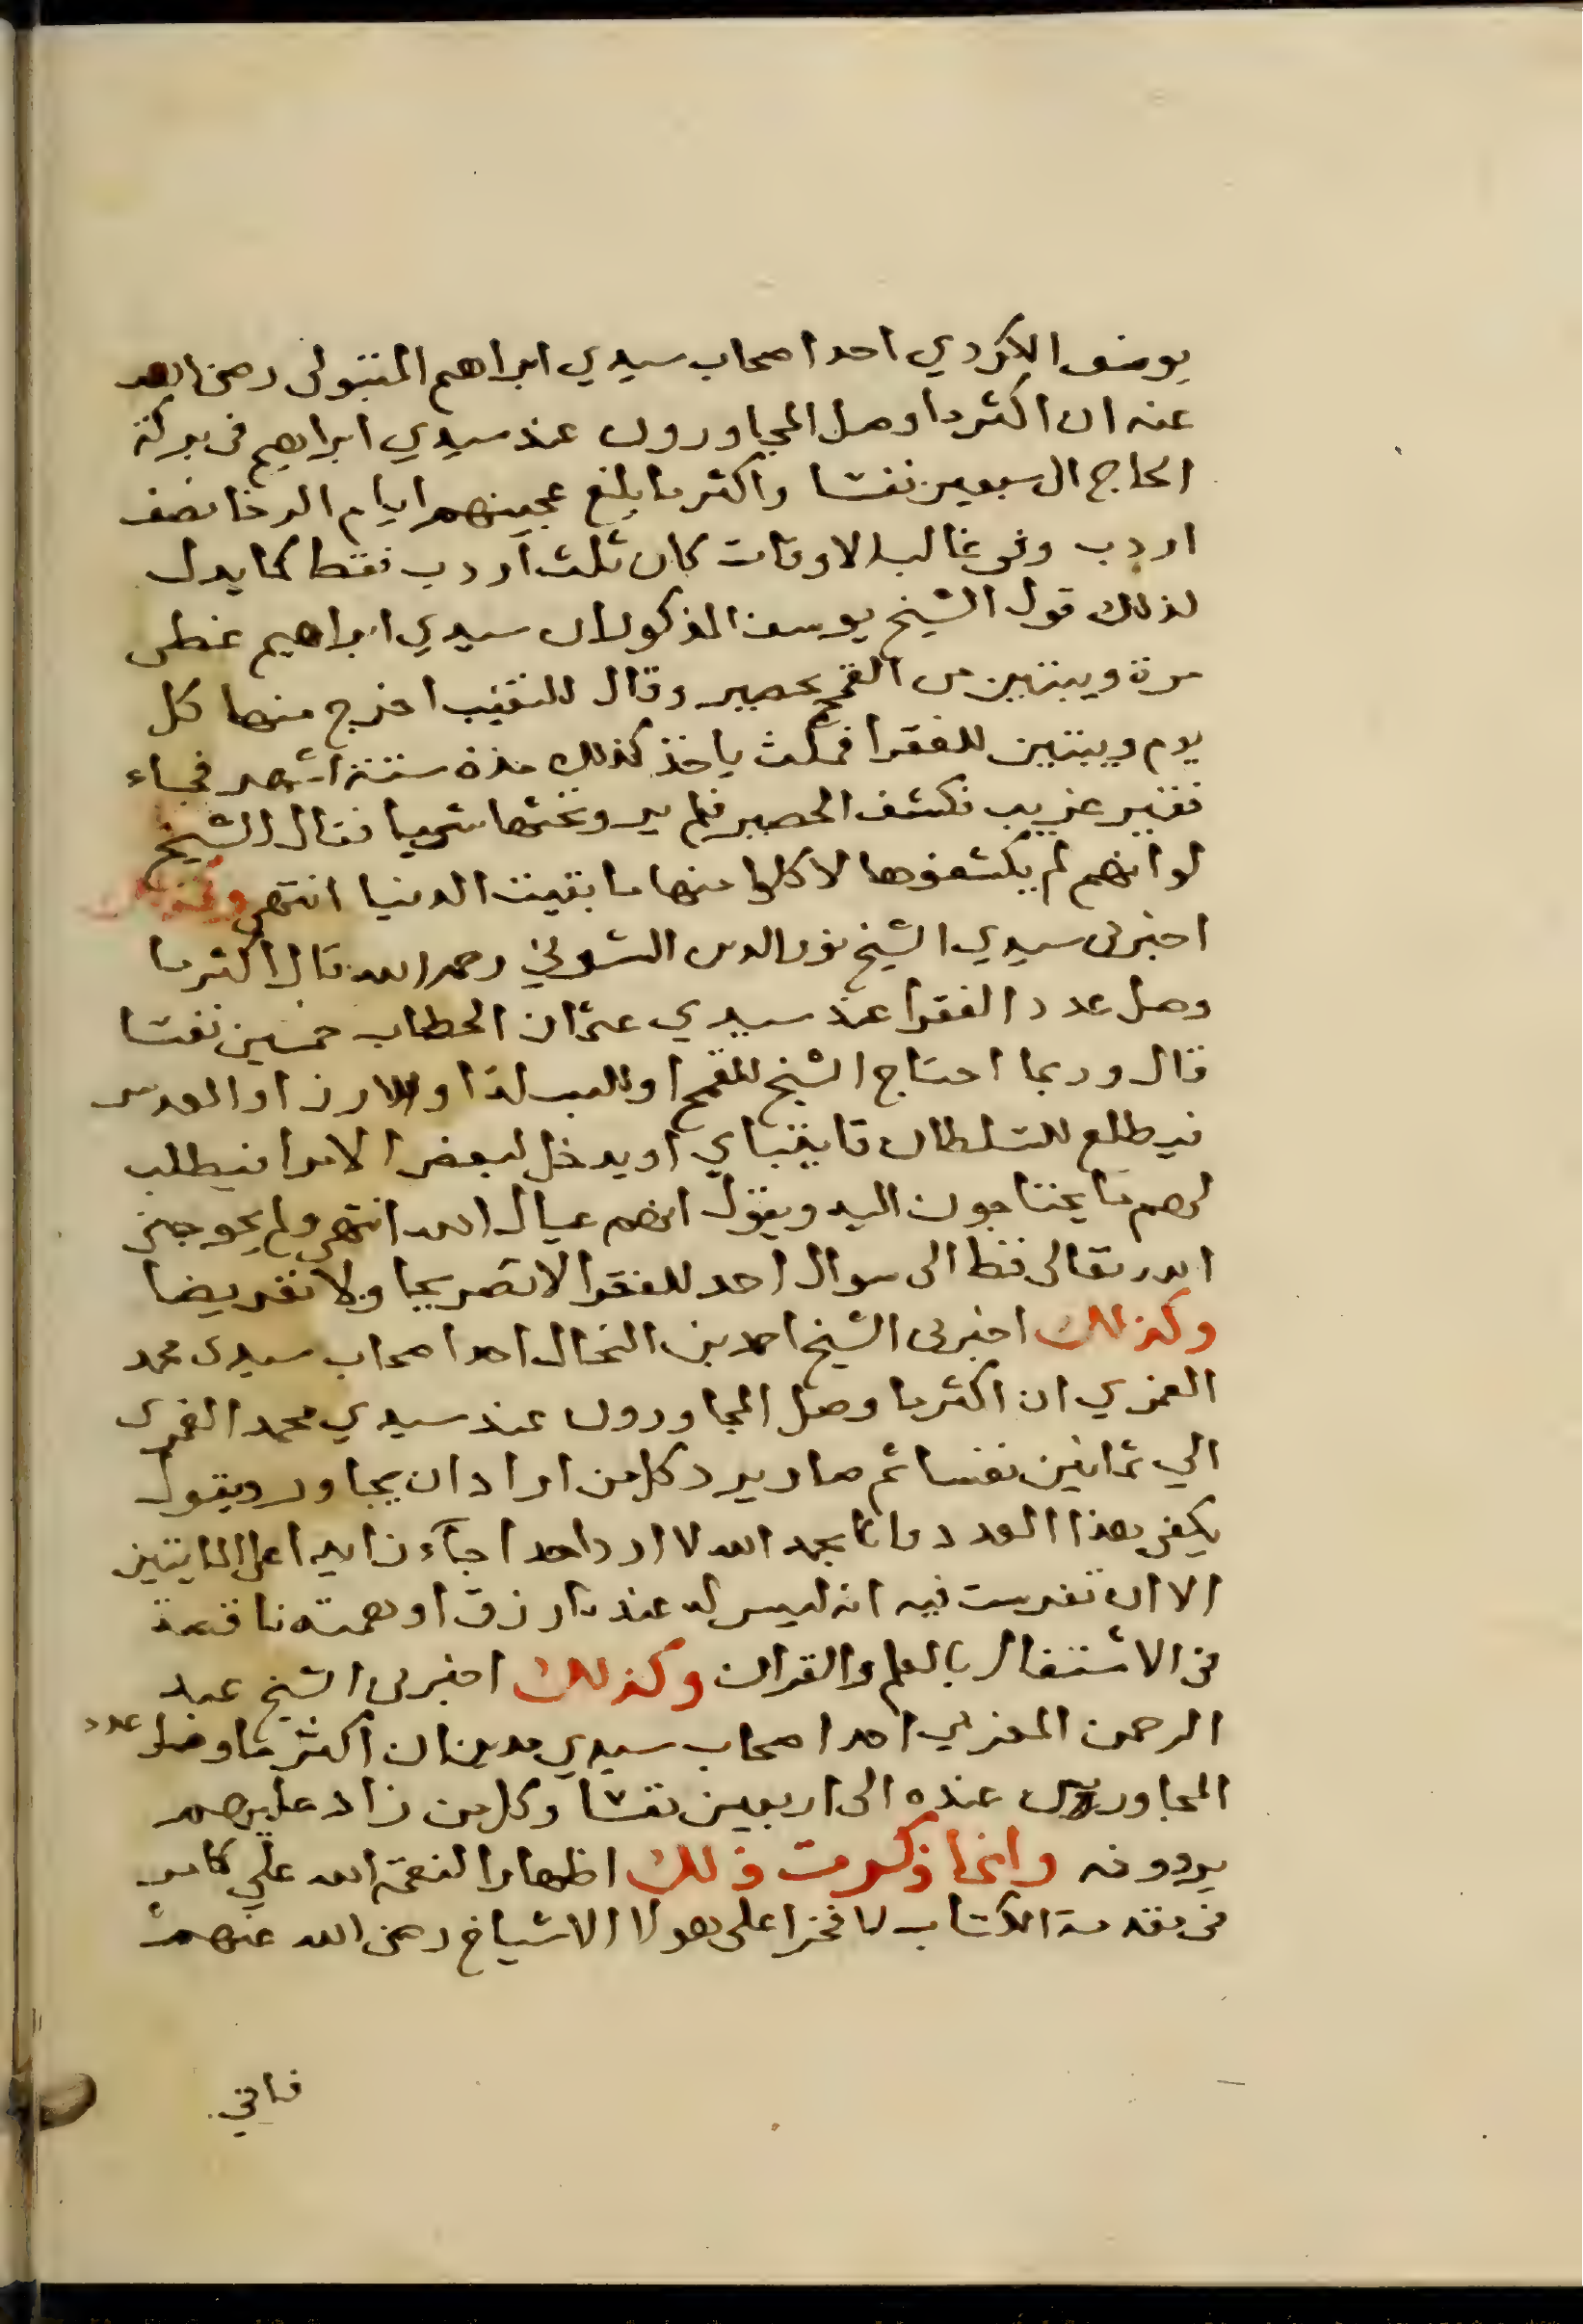 يوسف الكردي احد اصحاب سيدي ابراهم المتبولى رضى الله
عنه ان اكثر ما وصل المجاورون عند سيدي ابراهيم فى بركة
الحاج الى سبعين نفسا واكثر ما بلغ عجينهم ايام الرخا نصف
اردب وفى غالب الاوقات كان ثلث اردب فقط كما يدل
لذلك قول الشيخ يوسف المذكور ان سيدي ابراهيم غطى
مرة ويبتين من القمح بحصير وقال للنقيب اخرج منها كل
يوم ويبتين للفقرا فمكث ياخذ كذلك مدة ستة اشهر فجاء
فقير غريب فكشف الحصير فلم يرو تحتها شيا فقال الشيخ
لو انهم لم يكشفوها لاكلوا منها ما بقيت الدنيا انتهى وكذلك
اخبرنى سيدي الشيخ نور الدين الشونى رحمه الله قال اكثر ما
وصل عدد الفقرا عند سيدي عثمان الحطاب خمسين نفسا
قال وربما احتاج الشيخ للقمح او للبسلة او للارز او العدس
فيطلع للسلطان قايتباي او يدخل لبعض الامرا فيطلب
لهم ما يحتاجون اليه ويقول انهم عيال الله انتهى ولم يحوجنى
الله تعالى قط الى سوال احد للفقرا لا تصريحا ولا تعريضا
وكذلك اخبرنى الشيخ احمد بن النحال احد اصحاب سيدى محمد
الغمري ان اكثر ما وصل المجاورون عند سيدي محمد الغمرى
الي ثمانين نفسا ثم صار يرد كل من اراد ان يجاور ويقول
يكفى هذا العدد وانا بحمد الله لا ارد احدا جآء زايدا على المايتين
الا ان تفرست فيه انه ليس له عندنا رزق او همته ناقصة
فى الاشتغال بالعلم والقران وكذلك اخبرنى الشيخ عبد
الرحمن المغربي احد اصحاب سيدي مدين ان اكثر ما وصل عدد
المجاورين عنده الى اربعين نفسا وكل من زاد عليهم
يردونه وانما ذكرت ذلك اظهارا لنعمة الله علي كما مر
فى مقدمة الكتاب لا فخرا على هولا الاشياخ رضى الله عنهم
فانى